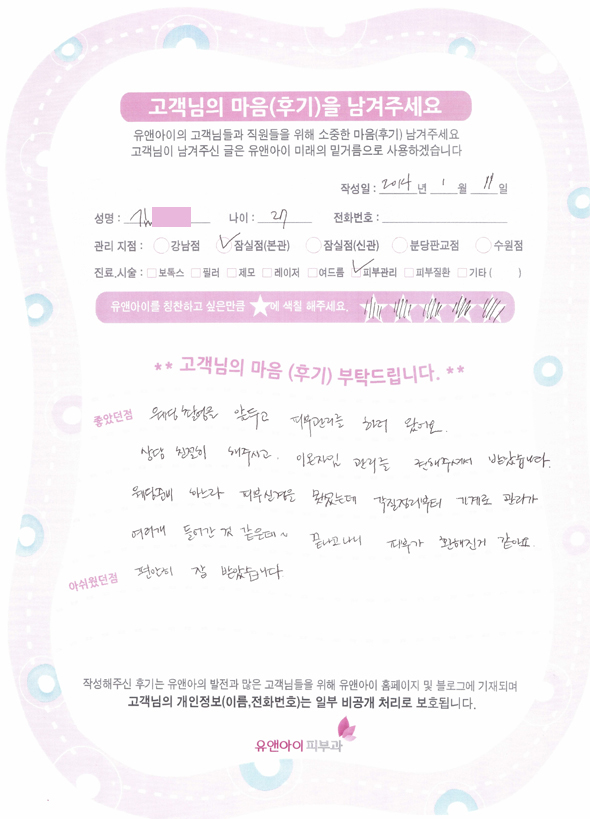 고객님의 마음(후기)을 남겨주세요
유앤아이의 고객님들과 직원들을 위해 소중한 마음(후기) 남겨주세요
고객님이 남겨주신 글은 유앤아이 미래의 밑거름으로 사용하겠습니다
작성일 : 2014 년 1 월 11 일
성명 : 김 나이 : 27 전화번호 :
관리 지점 : 강남점 잠실점(본관) 잠실점(신관) 분당판교점 수원점
진료,시술 : 보톡스 필러 제모 레이저 여드름 피부관리 피부질환 기타 ( )
유앤아이를 칭찬하고 싶은만큼 ★에 색칠 해주세요.
** 고객님의 마음 (후기) 부탁드립니다. **
좋았던점 웨딩촬영을 앞두고 피부관리를 하러 왔어요.
상당 친절히 해주시고. 이온자임 관리를 권해주셔서 받았습니다.
웨딩준비 하느라 피부신경을 못썼는데 각질정리부터 기계로 관리가
여러개 들어간 것 같은데~ 끝나고나니 피부가 환해진거 같아요.
아쉬웠던점 편안히 잘 받았습니다.
작성해주신 후기는 유앤아의 발전과 많은 고객님들을 위해 유앤아이 홈페이지 및 블로그에 기재되며
고객님의 개인정보(이름,전화번호)는 일부 비공개 처리로 보호됩니다.
유앤아이 피부과